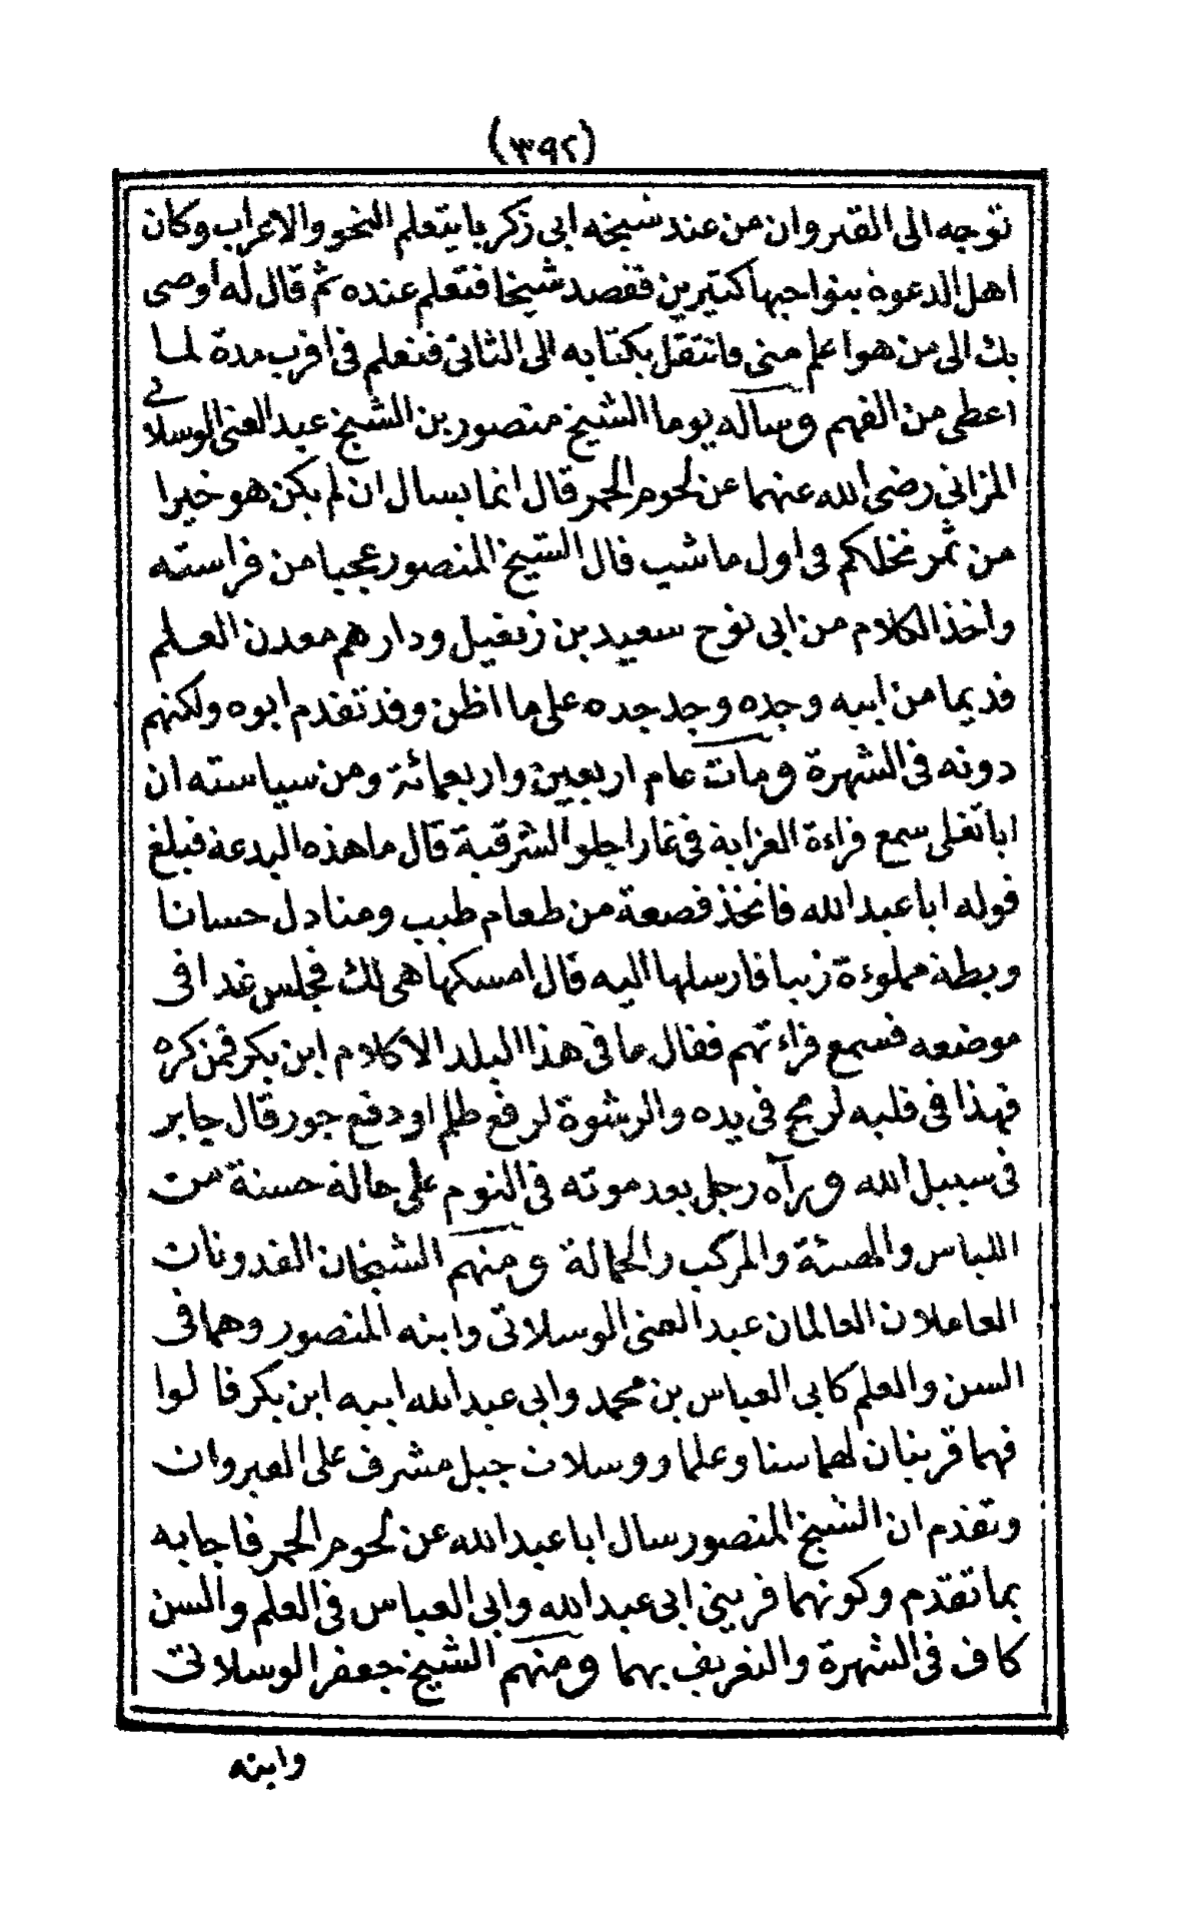 (٣٩٢)
توجه الى القيروان من عند شيخه ابى زكريا يتعلم النحو والاعراب وكان
اهل الدعوة بنواحيها كثيرين فقصد شيخا فتعلم عنده ثم قال له أوصى
بك الى من هو اعلم منى فانتقل بكتابه الى الثانى فتعلم فى اقرب مدة لما
اعطى من الفهم وساله يوما الشيخ منصور بن الشيخ عبد الغنى الوسلاتى
المزاتي رضى الله عنهما عن لحوم الحمر قال انما يسال ان لم يكن هو خيرا
من ثمر نخلكم فى اول ما شيب قال الشيخ المنصور عجبا من فراسته
واخذ الكلام من ابى نوح سعيد بن زنغيل ودارهم معدن العلم
قديما من ابيه وجده وجد جده على ما اظن وقد تقدم ابوه ولكنهم
دونه فى الشهرة ومات عام اربعين واربعمائة ومن سياسته ان
ابا تغلى سمع قراءة العزابة فى غار اجلو الشرقية قال ما هذه البدعة فبلغ
قوله ابا عبد الله فاتخذ قصعة من طعام طيب ومنادل حسانا
وبطة مملوءة زيتا فارسلها اليه قال امسكها هى لك فجلس غدا فى
موضعه فسمع قراءتهم فقال ما فى هذا البلد الا كلام ابن بكر فمن كره
فهذا فى قلبه لرمح فى يده والرشوة لرفع ظلم او دفع جور قال جابر
فى سبيل الله ورآه رجل بعد موته فى النوم على حالة حسنة من
اللباس والهيئة والمركب والحمالة ومنهم الشيخان القدوتان
العاملان العالمان عبد الغنى الوسلاتى وابنه المنصور وهما فى
السن والعلم كابى العباس بن محمد وابى عبد الله ابيه ابن بكر قالوا
فهما قرينان لهما سنا وعلما ووسلات جبل مشرف على القيروان
وتقدم ان الشيخ المنصور سال ابا عبد الله عن لحوم الحمر فاجابه
بما تقدم وكونهما قرينى ابى عبد الله وابى العباس فى العلم والسن
كاف فى الشهرة والتعريف بهما ومنهم الشيخ جعفر الوسلاتى
وابنه